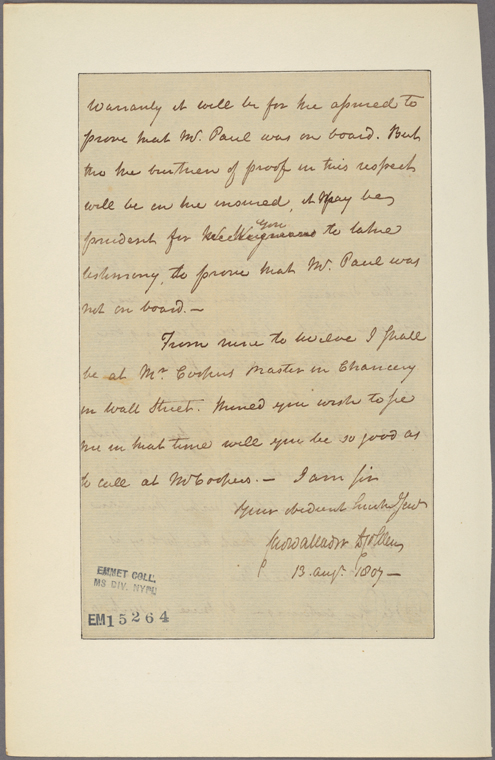 Warranty it will be for the assured to
prove that Mr. Paul was on board. But
tho the burthen of proof in this respect
will be on the insured, it may be
prudent for you to take
testimony, to prove that Mr. Paul was
not on board. —
From nine to twelve I shall
be at Mr. Coopers Master in Chancery
in Wall Street. Should you wish to see
me in that time will you be so good as
to call at Mr Coopers. — I am Sir
Your obedient humble Serv
13. augt. 1807 —
EMMET COLL.
MS DIV. NYPL
EM15264